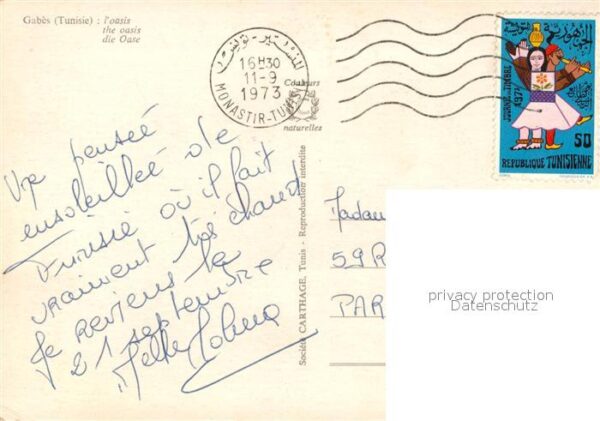 Gabès (Tunisie) : l'oasis
the oasis
die Oase
المنستير - تونس
16H30
11-9
1973
MONASTIR-TUNISIE
Couleurs
naturelles
الجمهورية التونسية
JOURNÉE DU TIMBRE
1971
50
REPUBLIQUE TUNISIENNE
Une pensée
ensoleillée de
Tunisie où il fait
vraiment très chaud
Je reviens le
21 septembre
Société CARTHAGE, Tunis - Reproduction interdite
Madam
59 R
PAR
privacy protection
Datenschutz